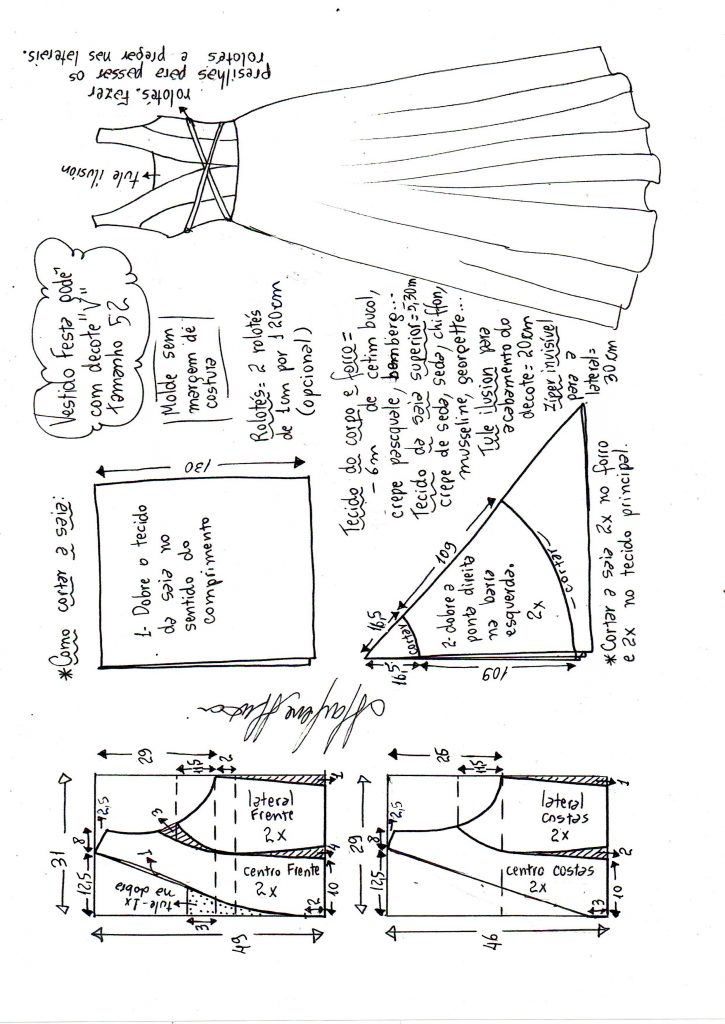 Vestido Festa pode
com decote "V"
Tamanho 52
Molde sem
margem de
costura
Rolotês= 2 rolotês
de 1cm por 120cm
(opcional)
Tecido do corpo e forro=
- 6m de cetim bucol,
crepe pascquale, bemberg...
Tecido da saia superior=5,30m
crepe de seda, seda, chiffon,
musseline, georgette...
Tule ilusion para
acabamento do
decote=20cm
Zíper invisível
para a
lateral=
30cm
tule ilusion
rolotês. Fazer
presilhas para passar os
rolotês e pregar nas laterais.
*Como cortar a saia:
130
1- Dobre o tecido
da saia no
sentido do
comprimento
16,5
109
cortar
2- dobre a
ponta direita
na barra
esquerda.
2x
cortar
16,5
109
*Cortar a saia 2x no forro
e 2x no tecido principal.
31
12,5
8
2,5
29
11,5
2
3
1
tule-1x
na dobra
3
lateral
Frente
2x
centro Frente
2x
2
10
4
1
49
29
12,5
8
2,5
26
11,5
lateral
costas
2x
centro costas
2x
3
10
2
1
46